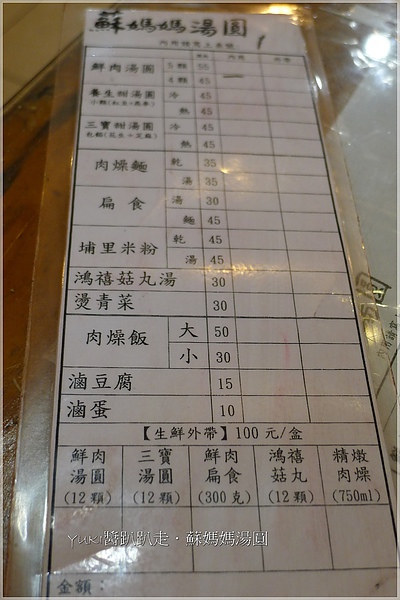 蘇媽媽湯圓
鮮肉湯圓 5顆 55
4顆 45
養生甜湯圓 冷 45
熱 45
三寶甜湯圓 冷 45
熱 45
肉燥麵 乾 35
湯 35
扁食 湯 30
麵 45
埔里米粉 乾 45
湯 45
鴻禧菇丸湯 30
燙青菜 30
肉燥飯 大 50
小 30
滷豆腐 15
滷蛋 10
【生鮮外帶】100元/盒
鮮肉湯圓(12顆) 三寶湯圓(12顆) 鮮肉扁食(300克) 鴻禧菇丸(12顆) 精燉肉燥(750ml)
Yuki醬趴趴走·蘇媽媽湯圓
金額：